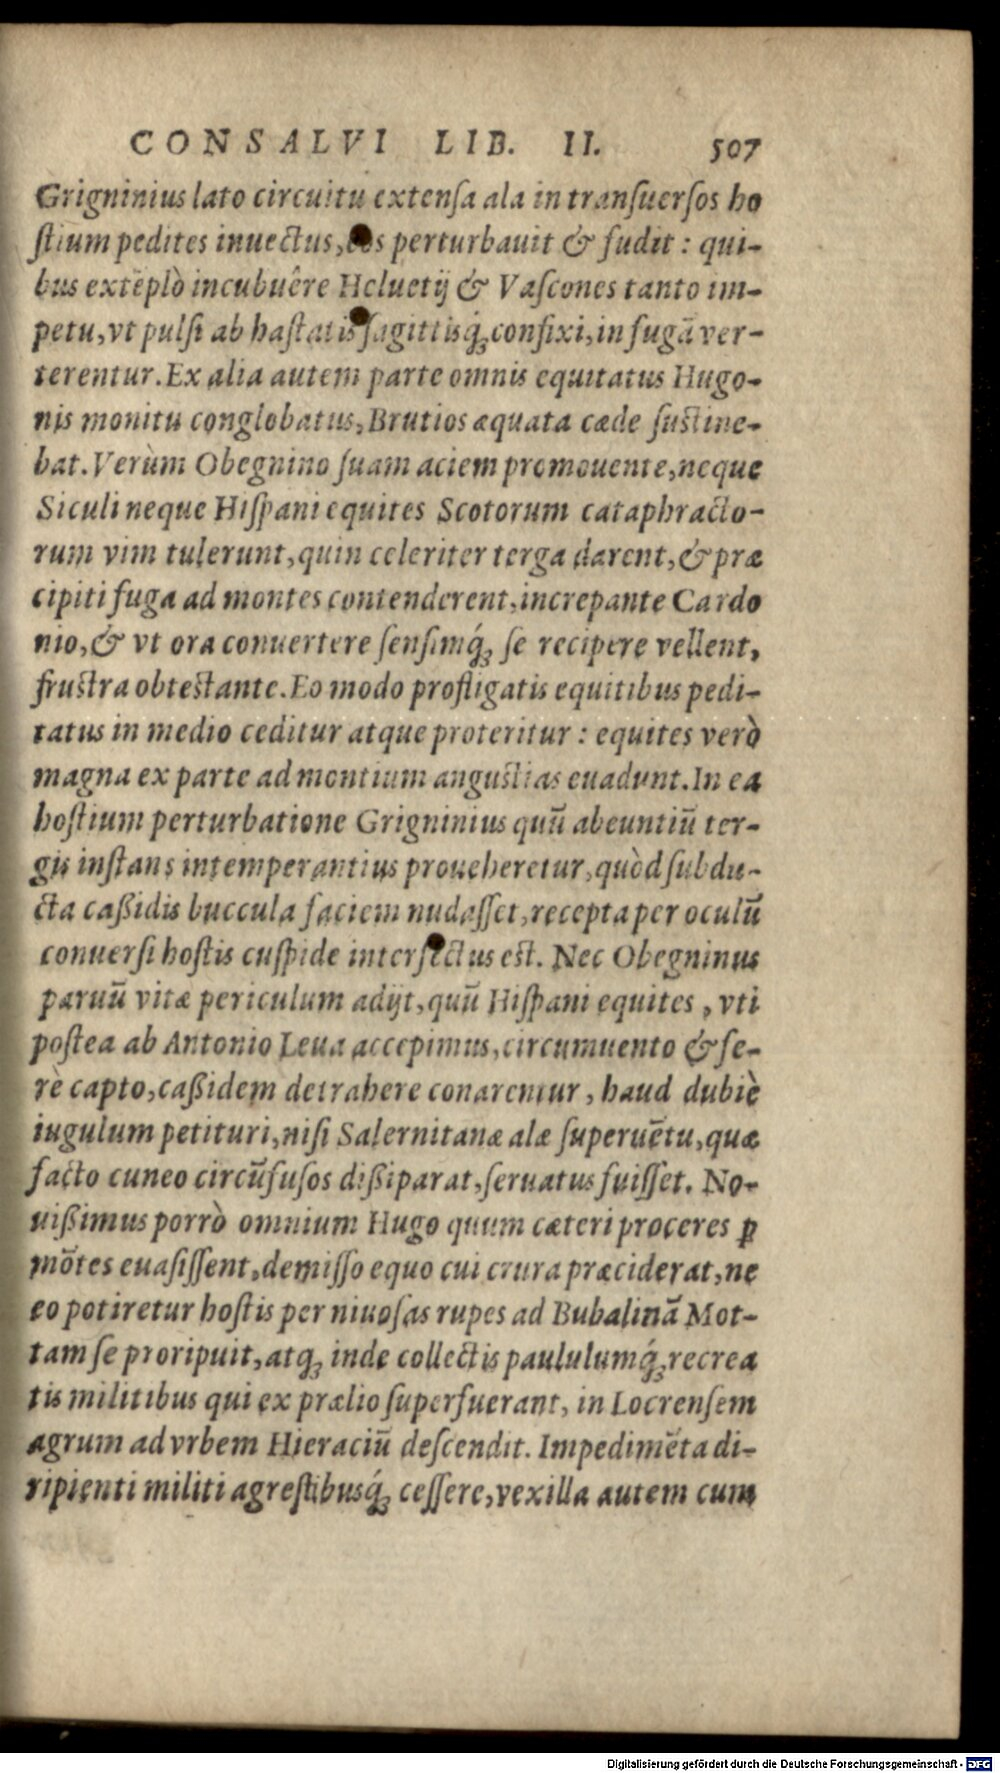 CONSALVI LIB. II. 507
Grigninius lato circuitu extenſa ala in tranſuerſos ho
ſtium pedites inuectus, eos perturbauit & fudit: qui-
bus extẽplò incubuêre Heluetij & Vaſcones tanto im-
petu, vt pulſi ab haſtatis ſagittisq́; confixi, in fugã ver-
terentur. Ex alia autem parte omnis equitatus Hugo-
nis monitu conglobatus, Brutios æquata cæde ſuſtine-
bat. Verùm Obegnino ſuam aciem promouente, neque
Siculi neque Hiſpani equites Scotorum cataphracto-
rum vim tulerunt, quin celeriter terga darent, & præ
cipiti fuga ad montes contenderent, increpante Cardo
nio, & vt ora conuertere ſenſimq́; ſe recipere vellent,
fruſtra obteſtante. Eo modo profligatis equitibus pedi-
tatus in medio ceditur atque proteritur: equites verò
magna ex parte ad montium anguſtias euadunt. In ea
hoſtium perturbatione Grigninius quũ abeuntiũ ter-
gis inſtans intemperantius proueheretur, quòd ſubdu-
cta caßidis buccula faciem nudaſſet, recepta per oculũ
conuerſi hoſtis cuſpide interfectus eſt. Nec Obegninus
paruũ vitæ periculum adijt, quũ Hiſpani equites, vti
poſtea ab Antonio Leua accepimus, circumuento & fe-
rè capto, caßidem detrahere conarentur, haud dubiè
iugulum petituri, niſi Salernitanæ alæ ſuperuẽtu, quæ
facto cuneo circũfuſos dißiparat, ſeruatus fuiſſet. No-
uißimus porrò omnium Hugo quum cæteri proceres ꝑ
mõtes euaſiſſent, demiſſo equo cui crura præciderat, ne
eo potiretur hoſtis per niuoſas rupes ad Bubalinã Mot-
tam ſe proripuit, atq; inde collectis paululumq́; recrea
tis militibus qui ex prælio ſuperfuerant, in Locrenſem
agrum ad vrbem Hieraciũ deſcendit. Impedimẽta di-
ripienti militi agreſtibusq́; ceſſere, vexilla autem cum
Digitalisierung gefördert durch die Deutsche Forschungsgemeinschaft - DFG